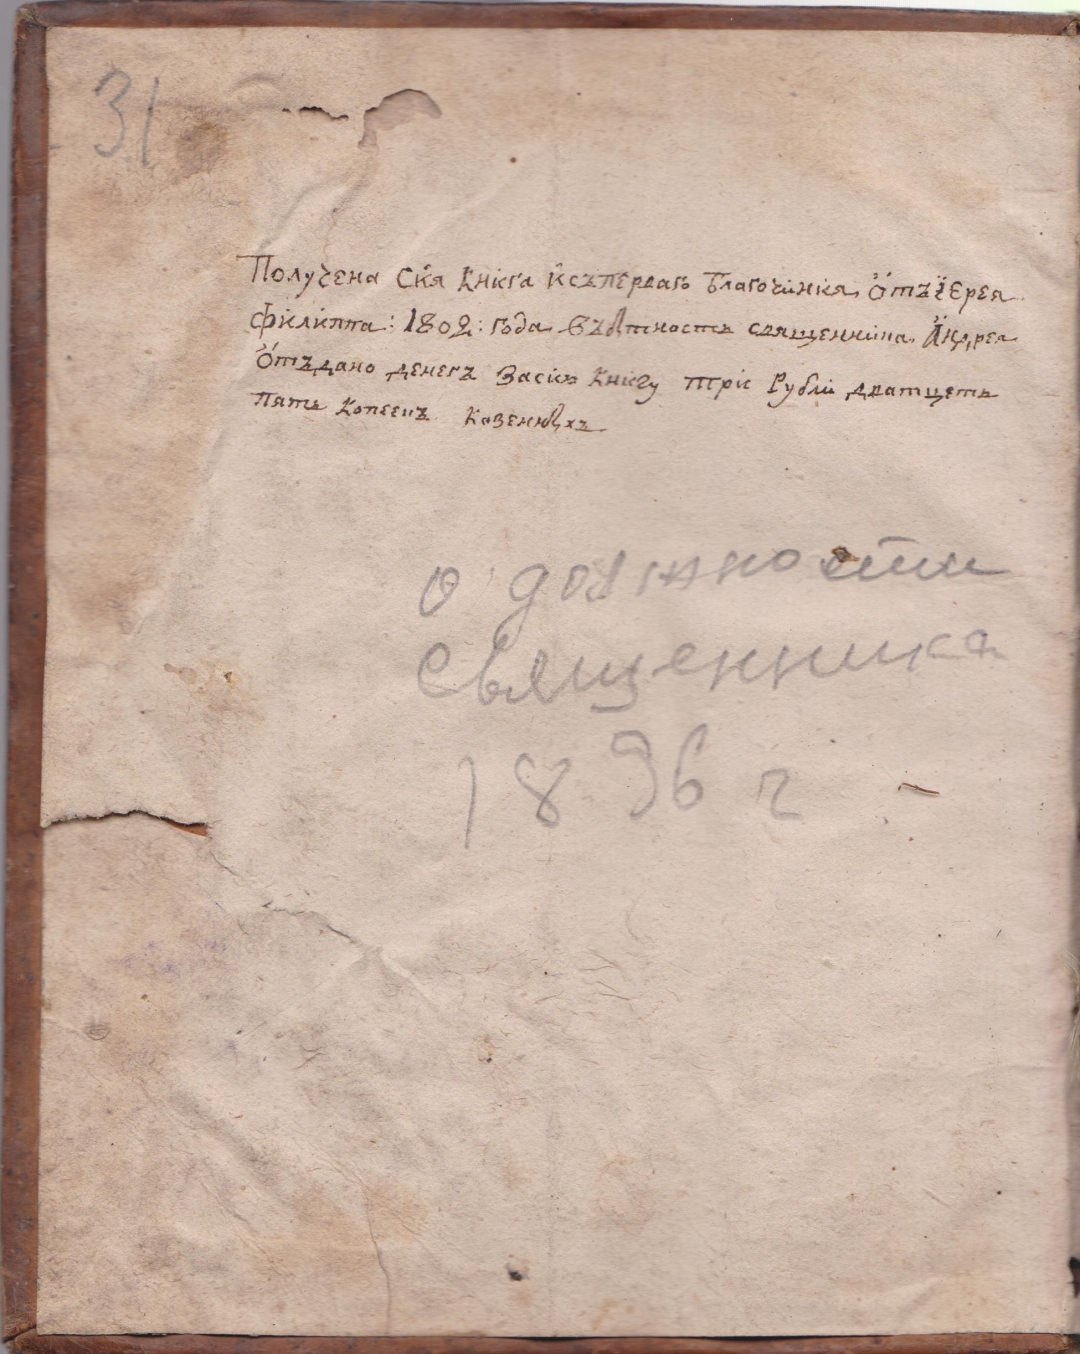 31
Получена Сїѧ Книга Исъпервагѡ Благочинїѧ Ѿтъ Іереѧ
Филиппа: 1802: года въбытность священника Андрея
Отъдано денегъ Засїю Книгу три Рубли дватцеть
пять Копеекъ Казенныхъ
о должности
священника
1896 г